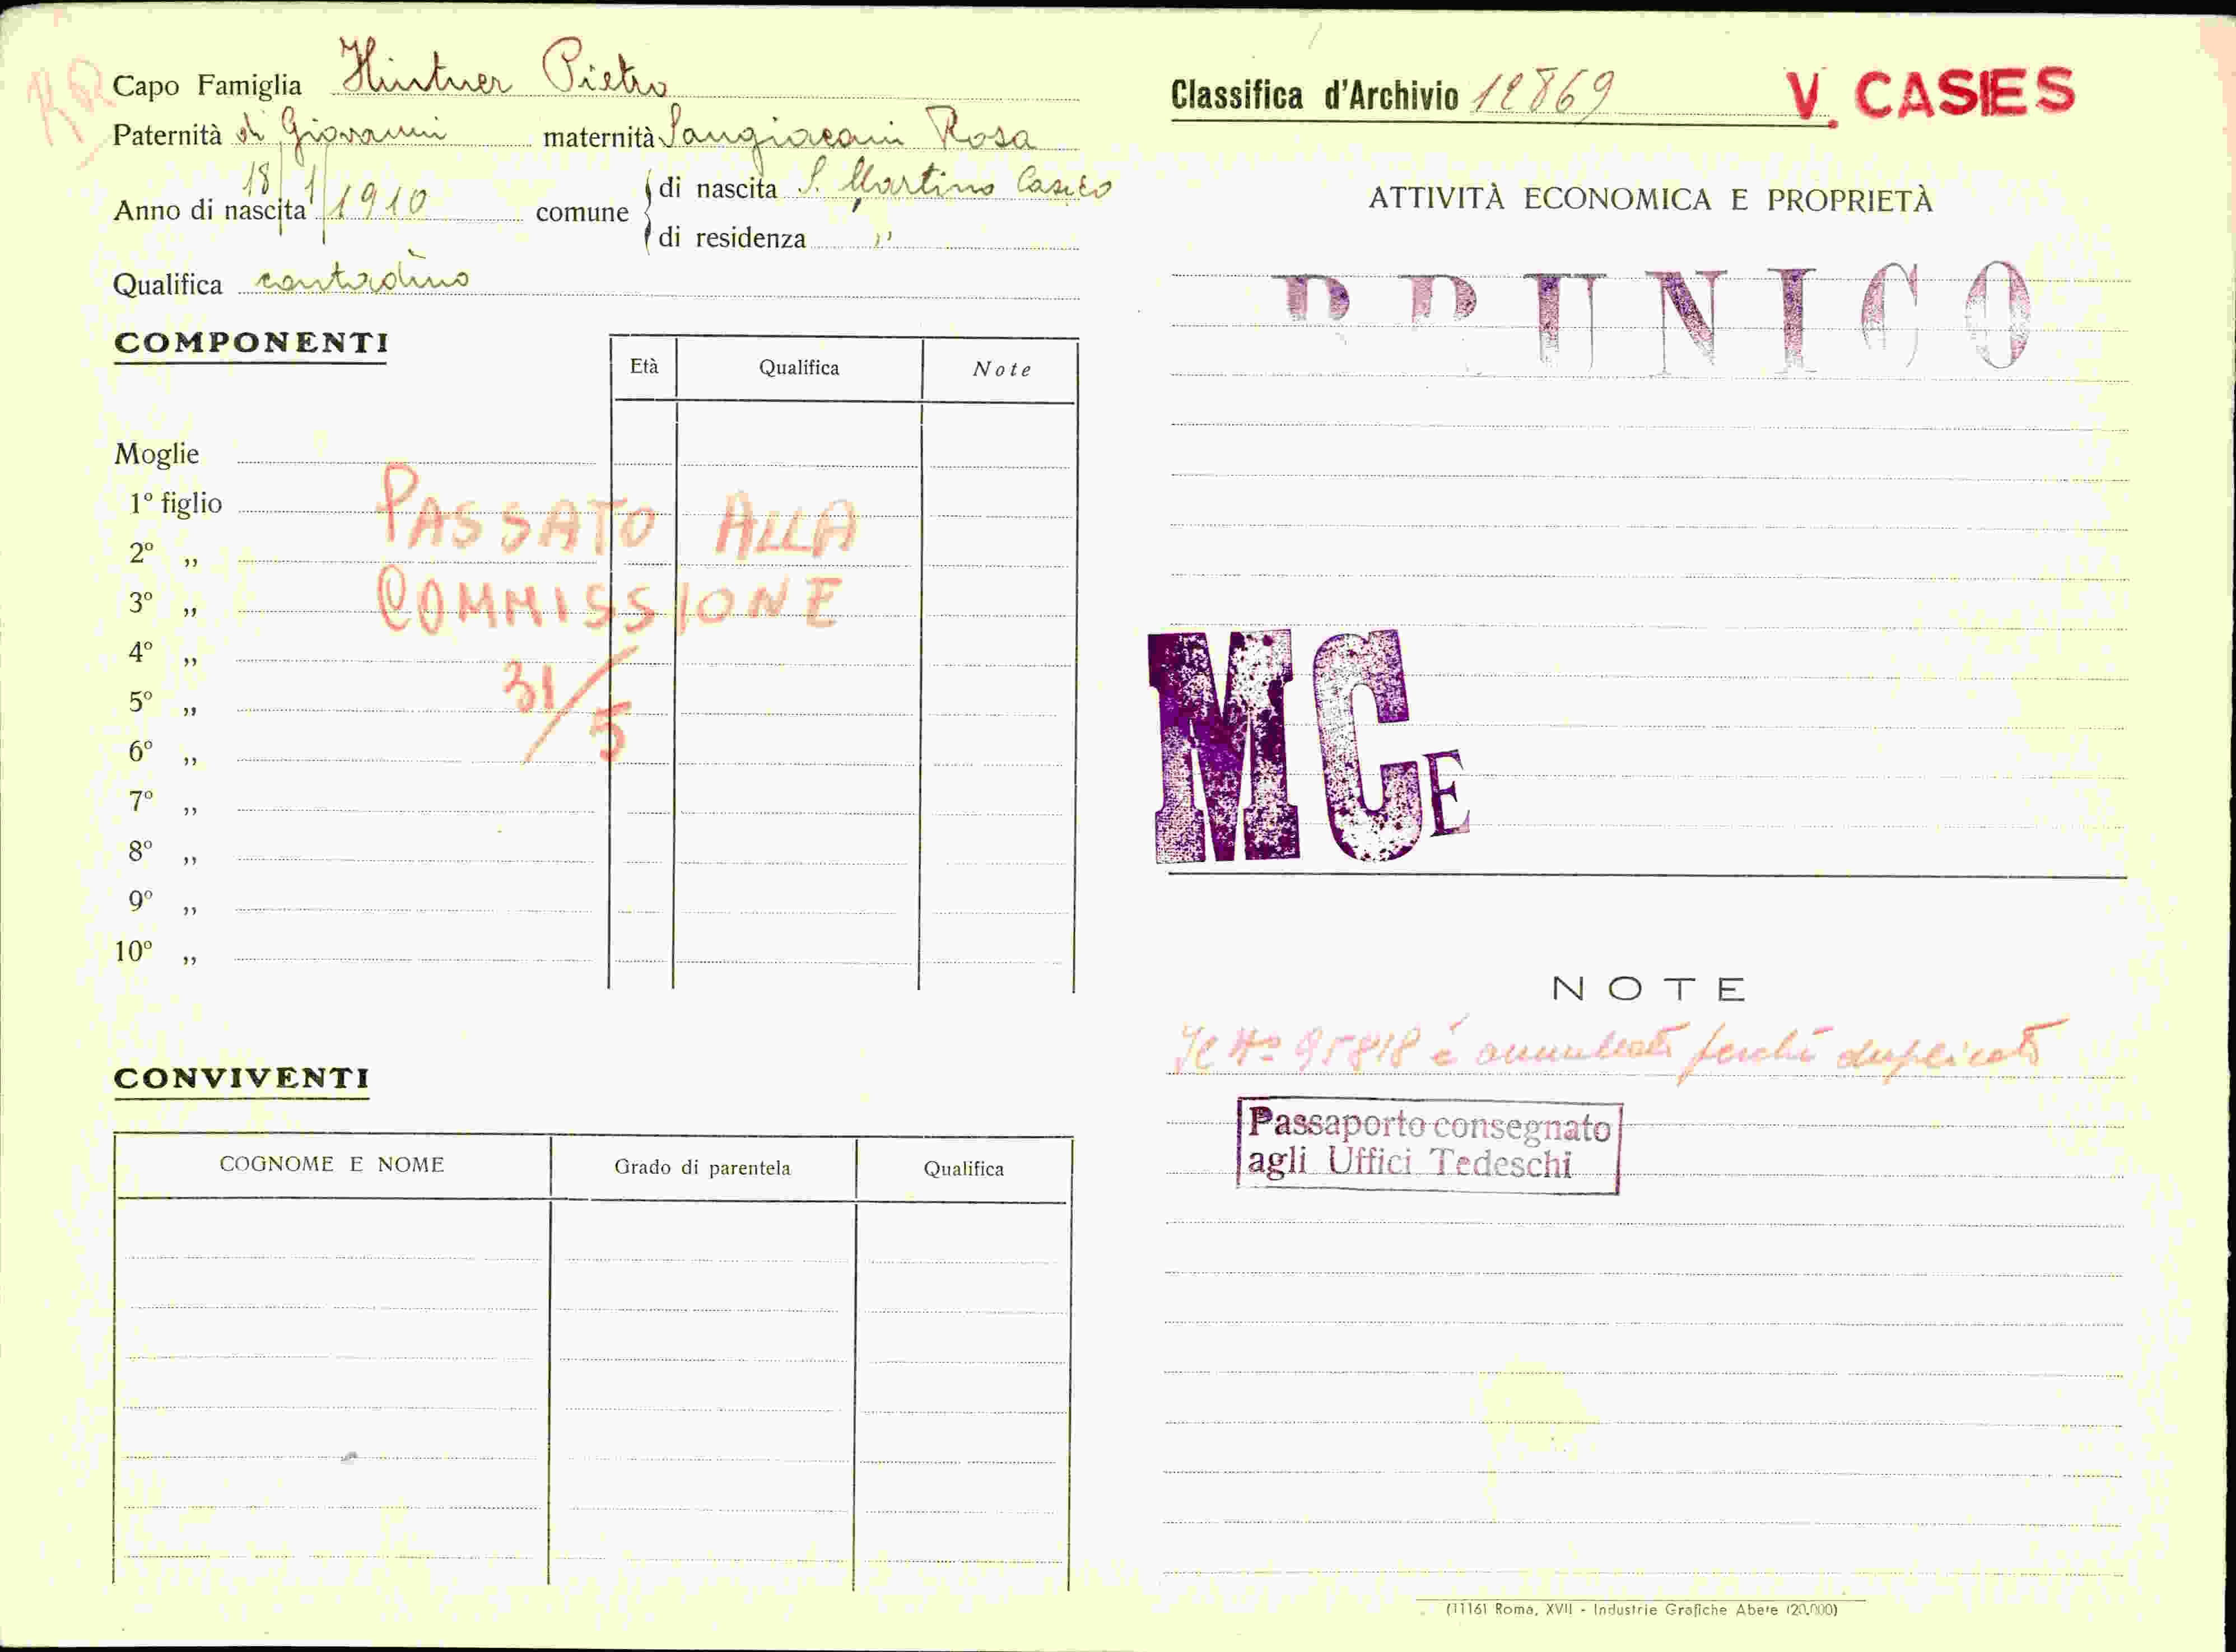 Capo Famiglia Hintner Pietro
Paternità di Giovanni maternità Sangiacomi Rosa
Anno di nascita 18/1/1910 comune di nascita S. Martino Casies
di residenza ,,
Qualifica contadino
COMPONENTI
Età Qualifica Note
Moglie
1º figlio
2º ,,
3º ,,
4º ,,
5º ,,
6º ,,
7º ,,
8º ,,
9º ,,
10º ,,
PASSATO ALLA
COMMISSIONE
31/5
CONVIVENTI
COGNOME E NOME Grado di parentela Qualifica
Classifica d'Archivio 12869
V. CASIES
ATTIVITÀ ECONOMICA E PROPRIETÀ
BRUNICO
MCE
NOTE
Il Nº 95818 è annullato perchè duplicato
Passaporto consegnato
agli Uffici Tedeschi
(11161 Roma, XVII - Industrie Grafiche Abete (20.000)